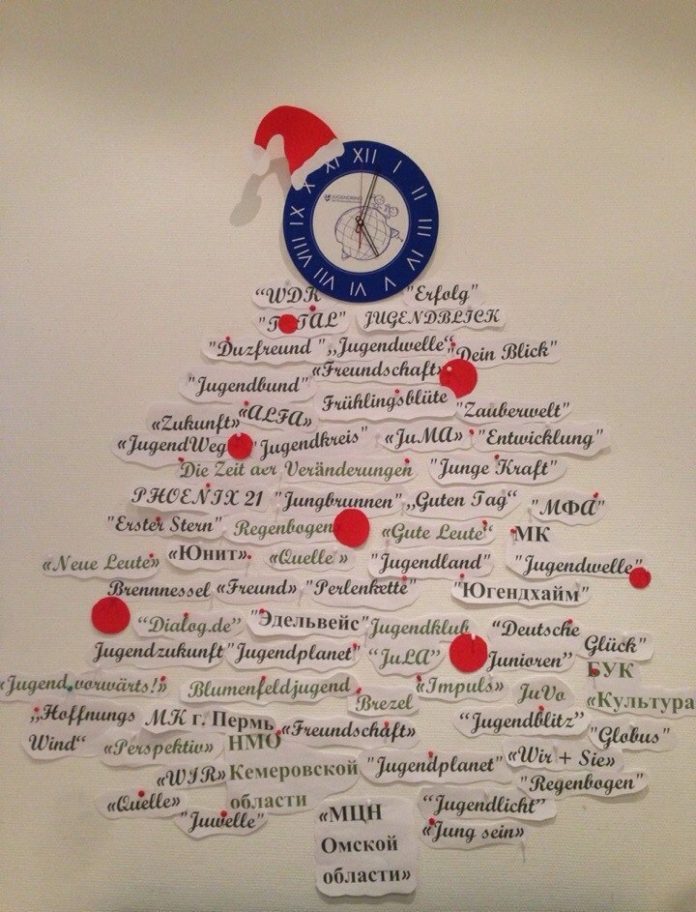 XII
I
II
III
IV
V
VI
VII
VIII
IX
X
XI
JUGENDRING
"WDK" "Erfolg"
"TOTAL" JUGENDBLICK
"Duzfreund" „Jugendwelle“ "Dein Blick"
«Freundschaft»
"Jugendbund" Frühlingsblüte
«Zukunft» «ALFA» "Zauberwelt"
«JugendWeg» "Jugendkreis" «JuMA» "Entwicklung"
Die Zeit der Veränderungen "Junge Kraft"
PHOENIX 21 "Jungbrunnen" „Guten Tag“ "МФА"
"Erster Stern" Regenbogen «Gute Leute“ МК
«Neue Leute» «Юнит». «Quelle » "Jugendland" "Jugendwelle"
Brennnessel «Freund» "Perlenkette" "Югендхайм"
“Dialog.de” "Эдельвейс" Jugendklub "Deutsche
Jugendzukunft "Jugendplanet" “JuLA” Junioren" Glück"
«Jugend vorwärts!» Blumenfeldjugend Brezel «Impuls» JuVo БУК
«Культура
„Hoffnungs МК г. Пермь «Freundschaft» “Jugendblitz” "Globus"
Wind“ «Perspektiv» НМО "Jugendplanet" «Wir + Sie»
«WIR» Кемеровской "Regenbogen"
«Quelle» области “Jugendlicht”
"Juwelle" «МЦН «Jung sein»
Омской
области»